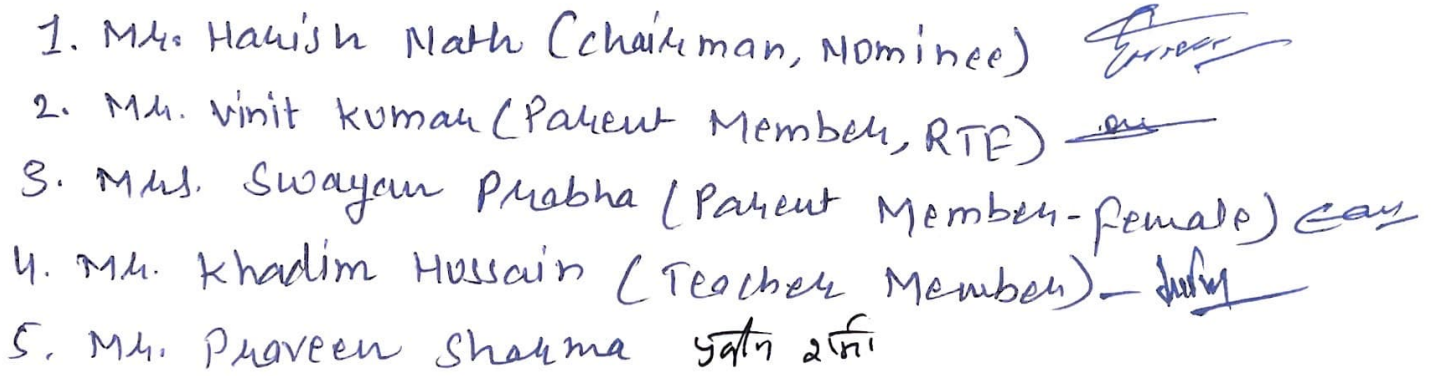 1. Mr. Harish Nath (Chairman, Nominee)
2. Mr. Vinit Kumar (Parent Member, RTE)
3. Mrs. Swayam Prabha (Parent Member-female)
4. Mr. Khadim Hussain (Teacher Member) -
5. Mr. Praveen Sharma प्रवीन शर्मा